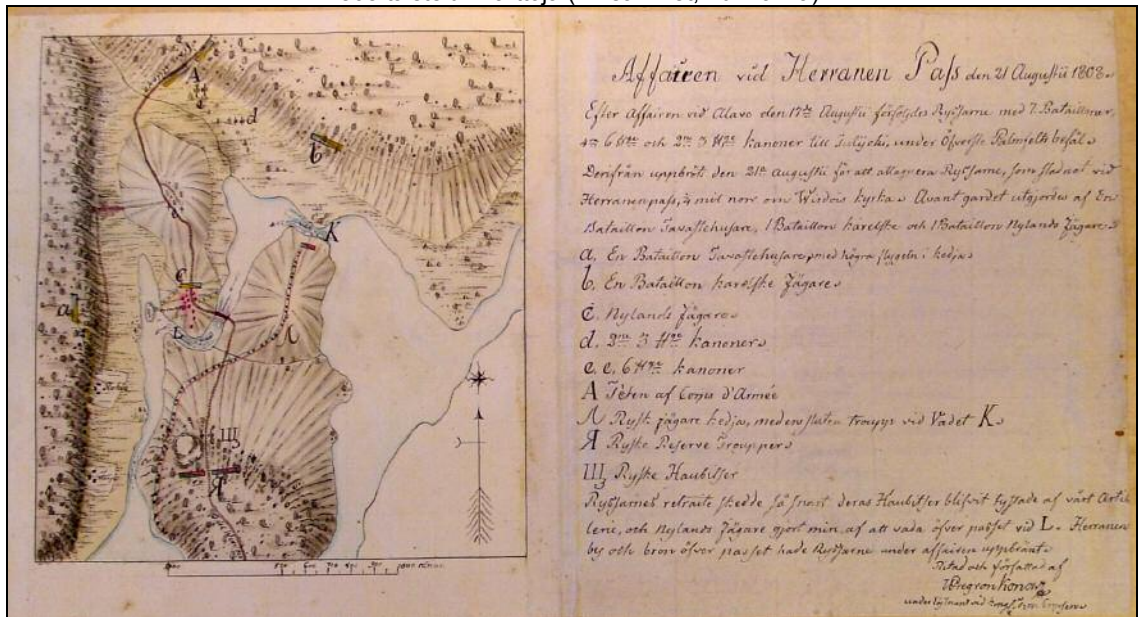 Affairen vid Herranen Paſs den 21 Augustii 1808.
Efter Affairen vid Alavo den 17de Augustii förföljdes Ryſsarne med 7. Batailloner,
och kanoner till under Öfverste Palmfelts befäl.
Derifrån uppbröt den 21de Augustii för att attaquera Ryſsarne, som vid
Herranenpaſs, mil norr om Wirdois kyrka. Avant gardet utgjordes af En
Bataillon Tavastehusare, 1 Bataillon karelſke och 1 Bataillon Nylands Jägare.
a. En Bataillon Tavastehusare, med högra flygeln i kedja.
b. En Bataillon karelſke Jägare.
c. Nylands Jägare.
d. kanoner.
e. e. kanoner
A Têten af Corps d'Armée
Л Ryſk jägare kedja, med en troupp vid Vadet K.
Я Ryſke Reserve Troupper.
Ш Ryſke Haubitser
Ryſsarnes retraite skedde så snart deras Haubitser blifvit tystade af vårt Artil-
lerie, och Nylands Jägare gjort min af att vada öfver paſset vid L. Herranen
by och bron öfver paſset hade Ryſsarne under affairen uppbränt.
Ritad och författad af
A
d
b
K
e
c
a
L
Л
Ш
Я